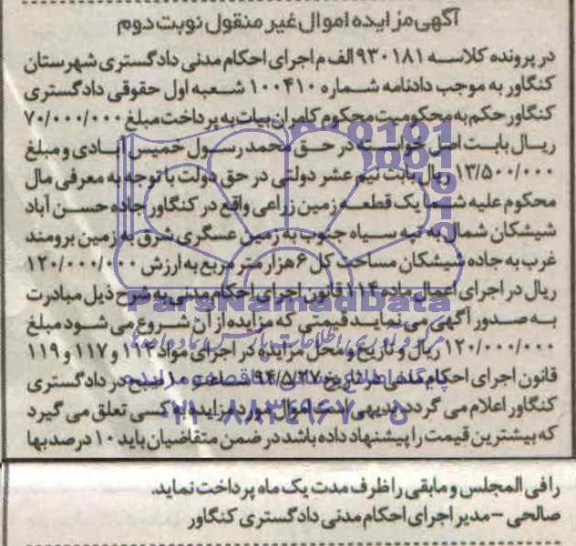 آگهی مزایده اموال غیر منقول نوبت دوم
در پرونده کلاسه ۹۳۰۱۸۱ الف م اجرای احکام مدنی دادگستری شهرستان
کنگاور به موجب دادنامه شماره ۱۰۰۴۱۰ شعبه اول حقوقی دادگستری
کنگاور حکم به محکومیت محکوم کامران بیات به پرداخت مبلغ ۷۰/۰۰۰/۰۰۰
ریال بابت اصل خواسته در حق محمد رسول خمیس آبادی و مبلغ
۱۳/۵۰۰/۰۰۰ ریال بابت نیم عشر دولتی در حق دولت با توجه به معرفی مال
محکوم علیه شما یک قطعه زمین زراعی واقع در کنگاور جاده حسن آباد
شیشکان شمال به تپه سیاه جنوب به زمین عسگری شرق به زمین برومند
غرب به جاده شیشکان مساحت کل ۶ هزار متر مربع به ارزش ۱۲۰/۰۰۰/۰۰۰
ریال در اجرای اعمال ماده ۱۱۴ قانون اجرای احکام مدنی به شرح ذیل مبادرت
به صدور آگهی می نماید قیمتی که مزایده از آن شروع می شود مبلغ
۱۲۰/۰۰۰/۰۰۰ ریال و تاریخ و محل مزایده در اجرای مواد ۱۱۳ و ۱۱۷ و ۱۱۹
قانون اجرای احکام مدنی در تاریخ ۹۴/۵/۲۷ ساعت ۱۰ صبح در دادگستری
کنگاور اعلام می گردد بدیهی است اموال مورد مزایده به کسی تعلق می گیرد
که بیشترین قیمت را پیشنهاد داده باشد در ضمن متقاضیان باید ۱۰ درصد بها
را فی المجلس و مابقی را ظرف مدت یک ماه پرداخت نماید.
صالحی - مدیر اجرای احکام مدنی دادگستری کنگاور
ParsNamadData
۰۲۱-۸۸۳۴۹۶۷۰-۵